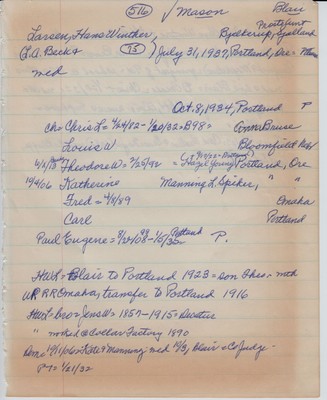 516 ✓ Mason Blair
Larsen, Hans Winther,
C.A. Beck & 75) July 31, 1937, Portland, Ore.
med
Oct. 8, 1934, Portland P
ch = Chris L = 4/24/82 - 1/20/32 = B98 = Anna Bruse
Louis W Bloomfield Neb
Theodore W = 2/25/92 = Hazel Jones Portland, Ore
10/9/06 Katherine Manning L. Spiker, " "
Fred = 4/5/89 Omaha
Carl Portland
Paul Eugene = 8/24/08 Portland P.
HWL = Blair to Portland 1923 = son Chas. - mtk
UP RR Omaha, transfer to Portland 1916
HWL = bro = Jens W = 1857-1915 = Decatur
" worked @ Collar Factory 1890
Dem 10/11/06 = Kate & Manning med 10/9, Blair & Co Judge -
1/21/32